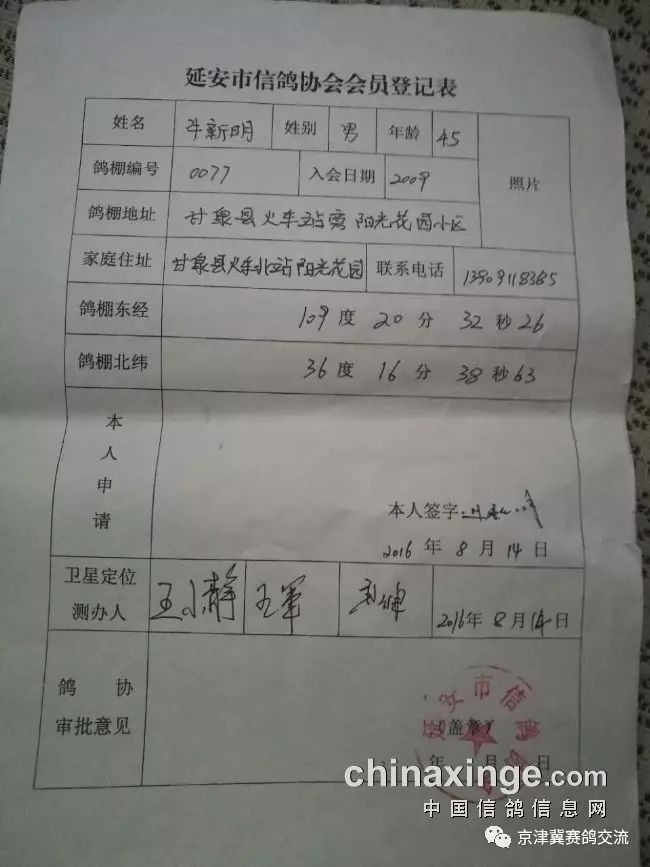 延安市信鸽协会会员登记表
姓名 牛新明 姓别 男 年龄 45
照片
鸽棚编号 0077 入会日期 2009
鸽棚地址 甘泉县火车站旁阳光花园小区
家庭住址 甘泉县火车北站阳光花园 联系电话
鸽棚东经 109度 20分 32秒26
鸽棚北纬 36度 16分 38秒63
本人申请
本人签字:
2016年8月14日
卫星定位测办人 王小静 王军 2016年8月14日
鸽协
审批意见
延安市信鸽
(盖章)
年 月 日
chinaxinge.com
中国信鸽信息网
京津冀赛鸽交流